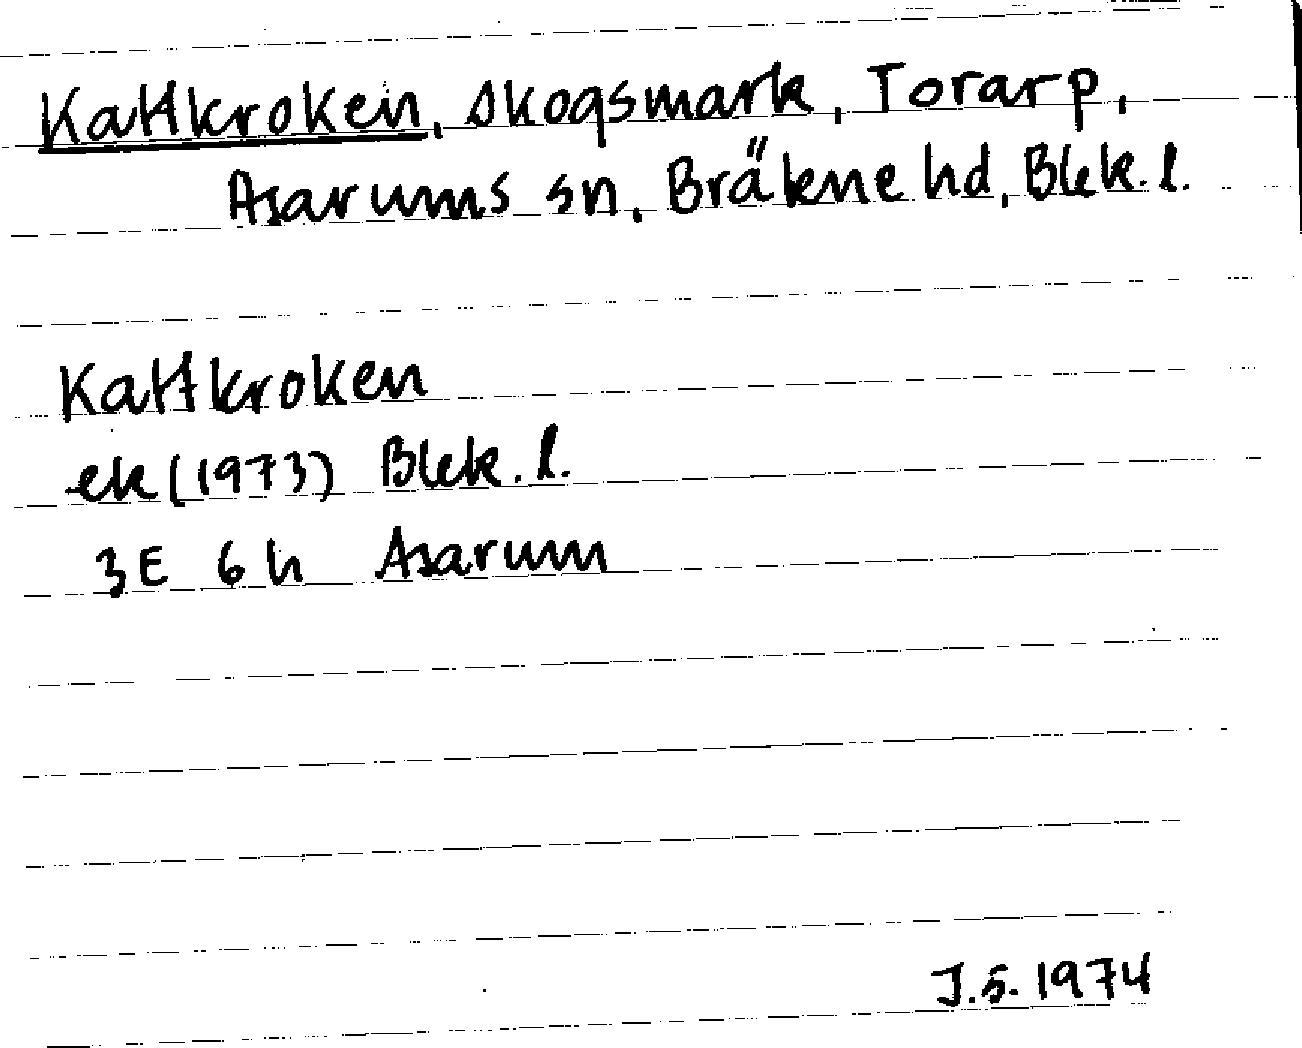 Kattkroken, skogsmark, Torarp,
Asarums sn, Bräkne hd, Blek. l.
Kattkroken
ek (1973) Blek. l.
3E 6h Asarum
J.S. 1974